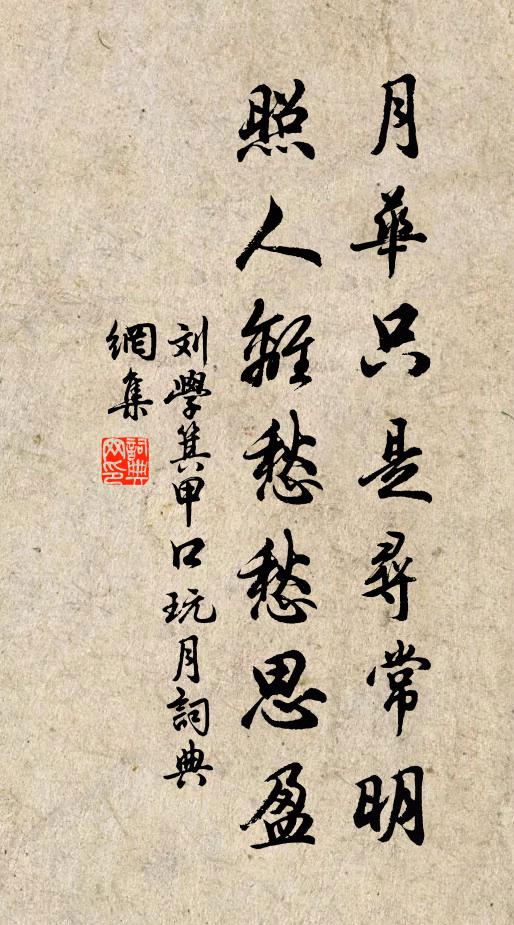 月華只是尋常明
照人離愁愁思盈
刘學箕甲口玩月詞典
網集
詞典
网印